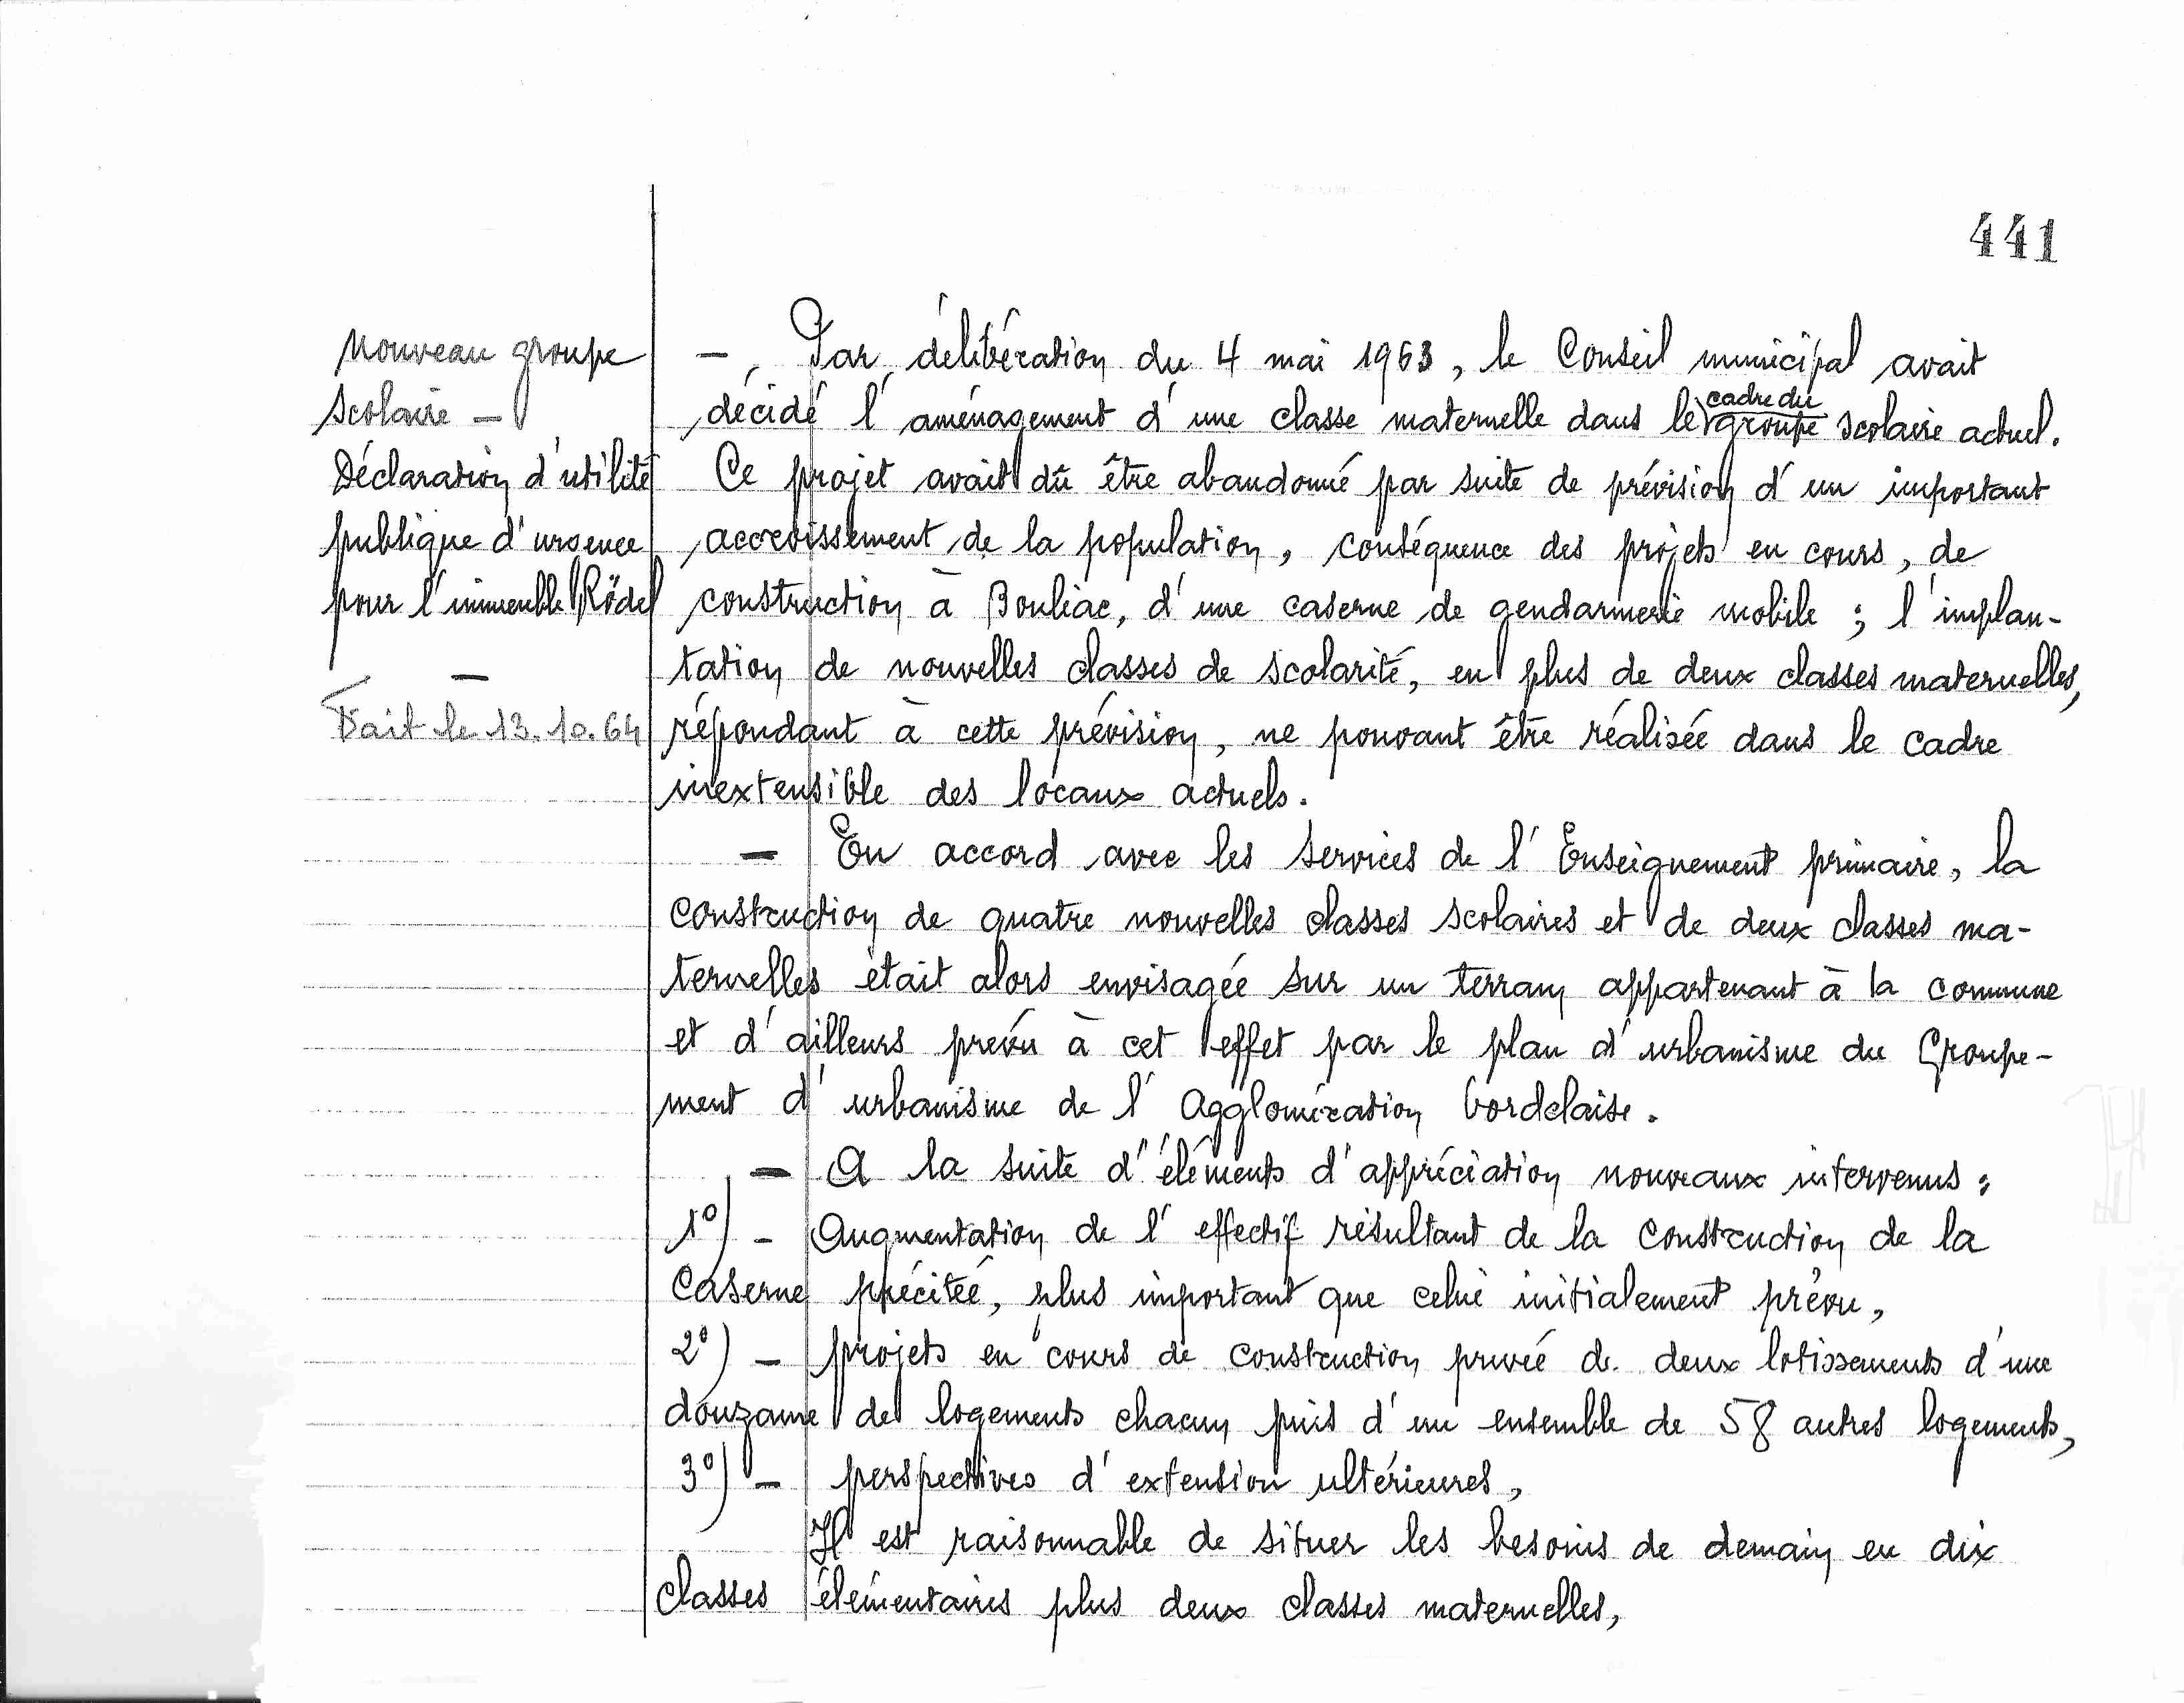 441
Nouveau groupe
scolaire -
Déclaration d'utilité
publique d'urgence
pour l'immeuble Rödel
-
Fait le 13.10.64
- Par délibération du 4 mai 1963, le Conseil municipal avait
décidé l'aménagement d'une classe maternelle dans le cadre du groupe scolaire actuel.
Ce projet avait dû être abandonné par suite de prévision d'un important
accroissement de la population, conséquence des projets en cours, de
construction à Bouliac, d'une caserne de gendarmerie mobile ; l'implan-
tation de nouvelles classes de scolarité, en plus de deux classes maternelles,
répondant à cette prévision, ne pouvant être réalisée dans le cadre
inextensible des locaux actuels.
- En accord avec les services de l'Enseignement primaire, la
construction de quatre nouvelles classes scolaires et de deux classes ma-
ternelles était alors envisagée sur un terrain appartenant à la commune
et d'ailleurs prévu à cet effet par le plan d'urbanisme du Groupe-
ment d'urbanisme de l'Agglomération bordelaise.
- A la suite d'éléments d'appréciation nouveaux intervenus :
1°) - Augmentation de l'effectif résultant de la construction de la
Caserne précitée, plus important que celui initialement prévu,
2°) - projets en cours de construction privée de deux lotissements d'une
douzaine de logements chacun puis d'un ensemble de 58 autres logements,
3°) - perspectives d'extension ultérieures,
Il est raisonnable de situer les besoins de demain en dix
classes élémentaires plus deux classes maternelles,